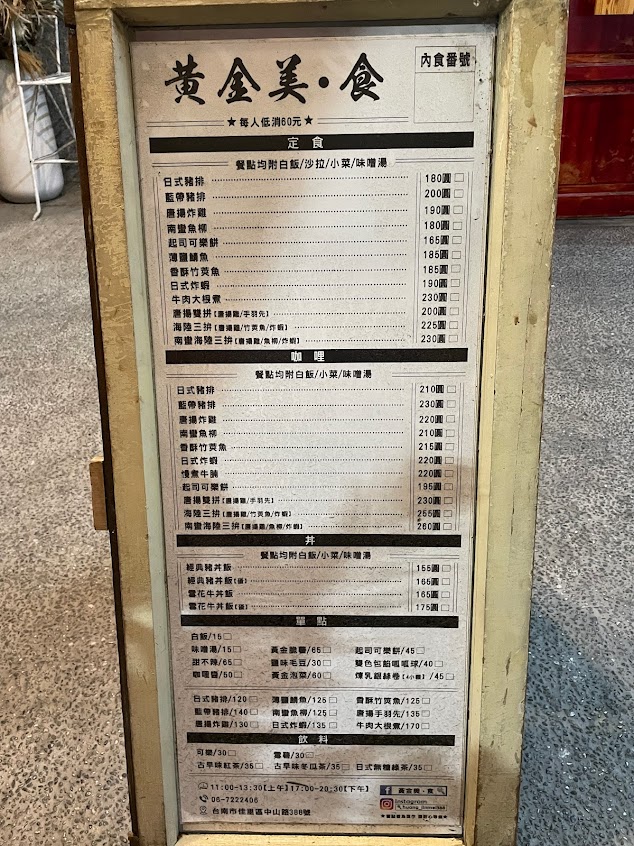 黃金美·食
內食番號
★每人低消60元★
定食
餐點均附白飯/沙拉/小菜/味噌湯
日式豬排 180圓
藍帶豬排 200圓
唐揚炸雞 190圓
南蠻魚柳 180圓
起司可樂餅 165圓
薄鹽鯖魚 185圓
香酥竹莢魚 185圓
日式炸蝦 190圓
牛肉大根煮 230圓
唐揚雙拼【唐揚雞/手羽先】 200圓
海陸三拼【唐揚雞/竹莢魚/炸蝦】 225圓
南蠻海陸三拼【唐揚雞/魚柳/炸蝦】 230圓
咖哩
餐點均附白飯/小菜/味噌湯
日式豬排 210圓
藍帶豬排 230圓
唐揚炸雞 220圓
南蠻魚柳 210圓
香酥竹莢魚 215圓
日式炸蝦 220圓
慢煮牛腩 220圓
起司可樂餅 195圓
唐揚雙拼【唐揚雞/手羽先】 230圓
海陸三拼【唐揚雞/竹莢魚/炸蝦】 255圓
南蠻海陸三拼【唐揚雞/魚柳/炸蝦】 260圓
丼
餐點均附白飯/小菜/味噌湯
經典豬丼飯 155圓
經典豬丼飯 165圓
雪花牛丼飯 165圓
雪花牛丼飯 175圓
單點
白飯/15
味噌湯/15 黃金脆薯/65 起司可樂餅/45
甜不辣/65 鹽味毛豆/30 雙色包餡呱呱球/40
咖哩醬/50 黃金泡菜/60 煉乳銀絲卷/45
日式豬排/120 薄鹽鯖魚/125 香酥竹莢魚/125
藍帶豬排/140 南蠻魚柳/125 唐揚手羽先/135
唐揚炸雞/130 日式炸蝦/135 牛肉大根煮/170
飲料
可樂/30 雪碧/30
古早味紅茶/35 古早味冬瓜茶/35 日式無糖綠茶/35
11:00-13:30【上午】17:00-20:30【下午】
黃金美·食
06-7222406
Instagram
台南市佳里區中山路388號